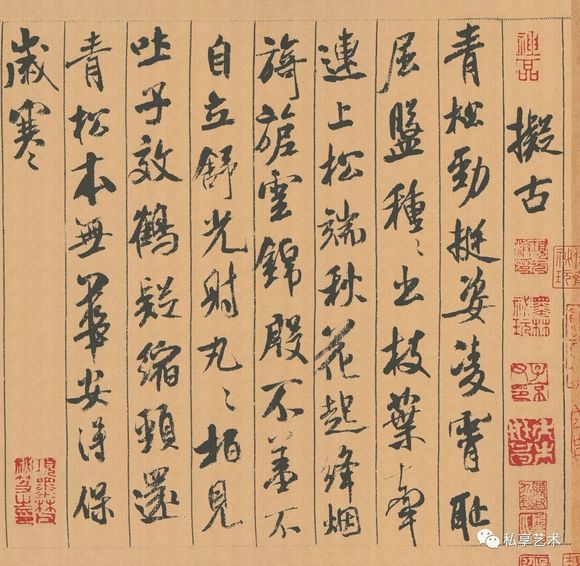 神品
擬古
青松勁挺姿凌霄耻
屈盤種〻出枝葉牽
連上松端秋花起絳烟
旖旎雲錦殷不羞不
自立舒光射丸〻柏見
吐子效鶴疑縮頸還
青松本無華安得保
歲寒
墨林秘玩
私享艺术